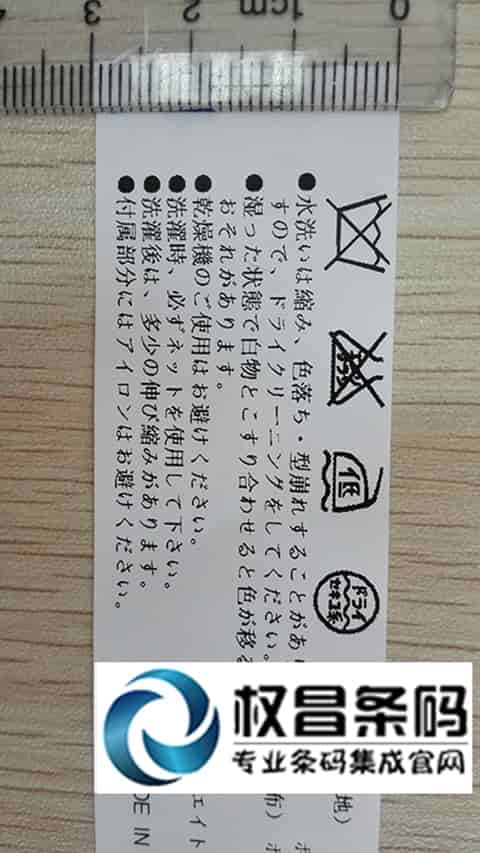 0 1cm 2 3 4
エンソサラシ
低
ドライ
セキユ系
●水洗いは縮み、色落ち・型崩れすることがあり
すので、ドライクリーニングをしてください。
●湿った状態で白物とこすり合わせると色が移る
おそれがあります。
●乾燥機のご使用はお避けください。
●洗濯時、必ずネットを使用して下さい。
●洗濯後は、多少の伸び縮みがあります。
●付属部分にはアイロンはお避けください。
权昌条码
专业条码集成官网
地）
布）
エイト
DE IN